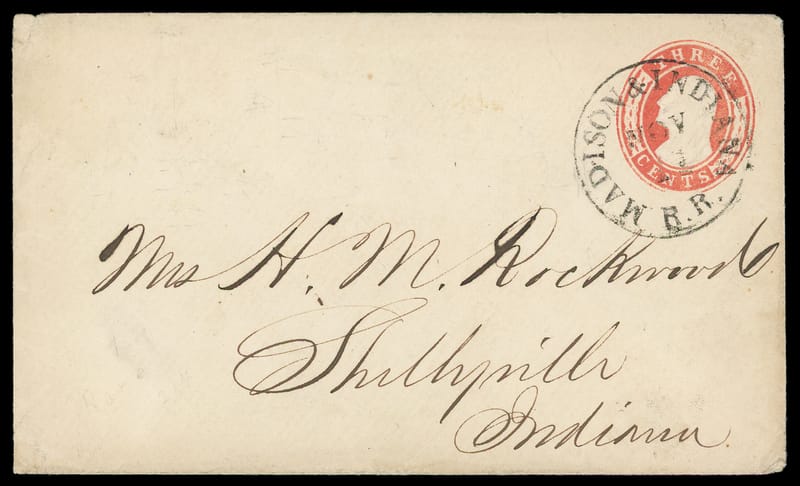 THREE
CENTS
MADISON & INDIANA R.R.
NOV
1
Mrs H. M. Rockwood
Shellyville
Indiana